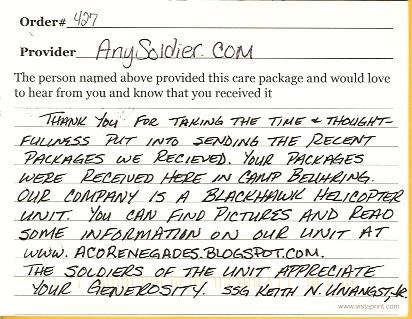 Order# 427
Provider AnySoldier.COM
The person named above provided this care package and would love
to hear from you and know that you received it
THANK YOU FOR TAKING THE TIME & THOUGHT-
FULLNESS PUT INTO SENDING THE RECENT
PACKAGES WE RECIEVED. YOUR PACKAGES
WERE RECEIVED HERE IN CAMP BEUHRING.
OUR COMPANY IS A BLACKHAWK HELICOPTER
UNIT. YOU CAN FIND PICTURES AND READ
SOME INFORMATION ON OUR UNIT AT
WWW.ACORENEGADES.BLOGSPOT.COM.
THE SOLDIERS OF THE UNIT APPRECIATE
YOUR GENEROSITY. SSG KEITH N. UNANGST, JR.
www.vistaprint.com